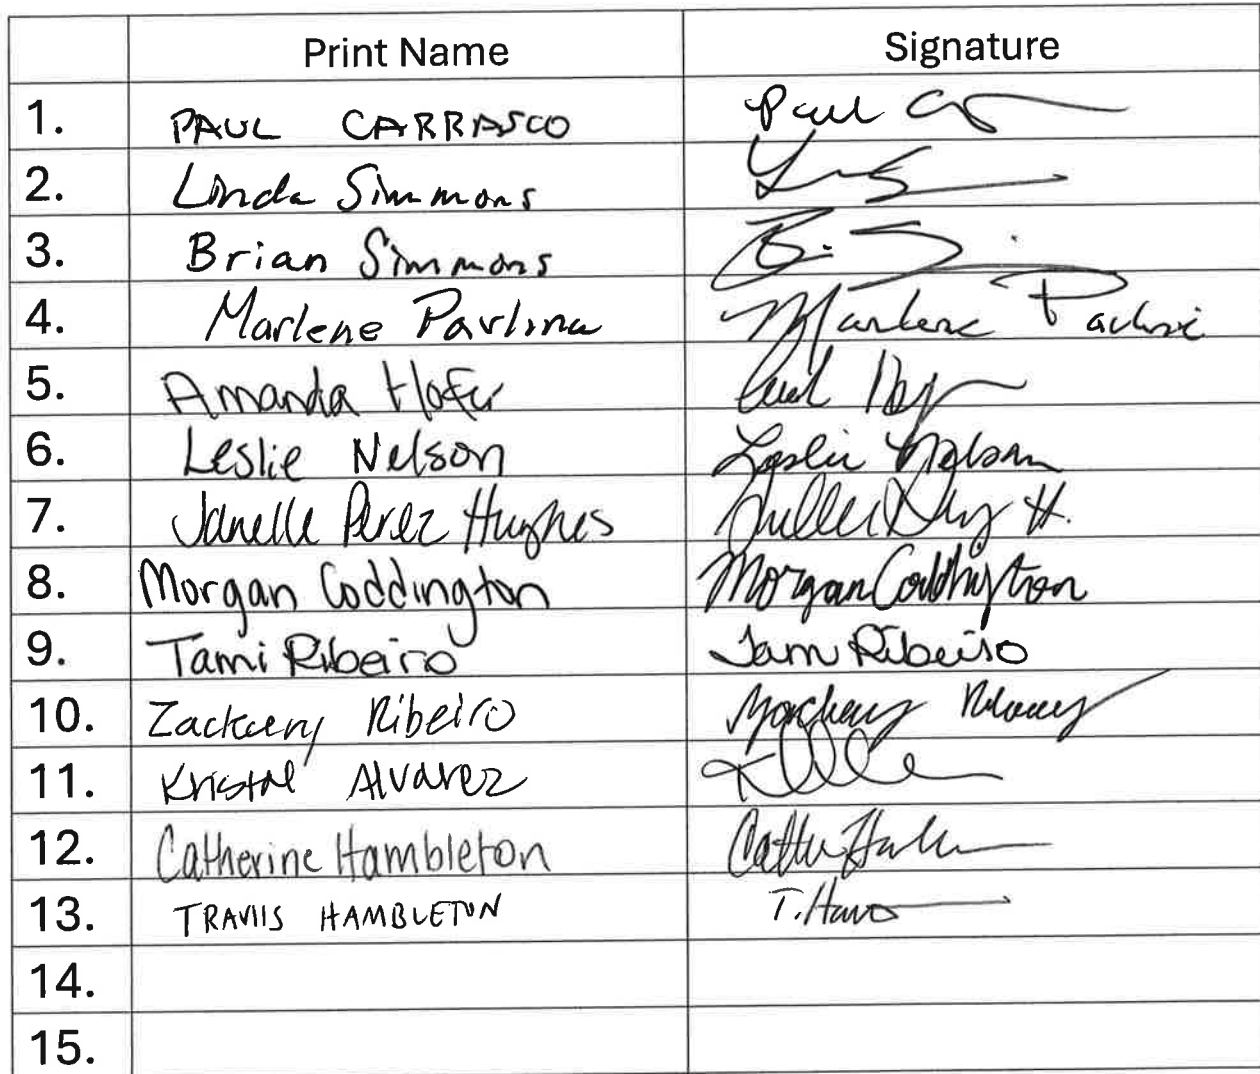 Print Name Signature
1. PAUL CARRASCO Paul
2. Linda Simmons
3. Brian Simmons
4. Marlene Pavlina Marlene
5. Amanda Hofer
6. Leslie Nelson Leslie Nelson
7. Janelle Perez Hughes H.
8. Morgan Coddington Morgan Coddington
9. Tami Ribeiro Tami Ribeiro
10. Zackery Ribeiro
11. Kristal Alvarez
12. Catherine Hambleton
13. TRAVIIS HAMBLETON T.
14.
15.